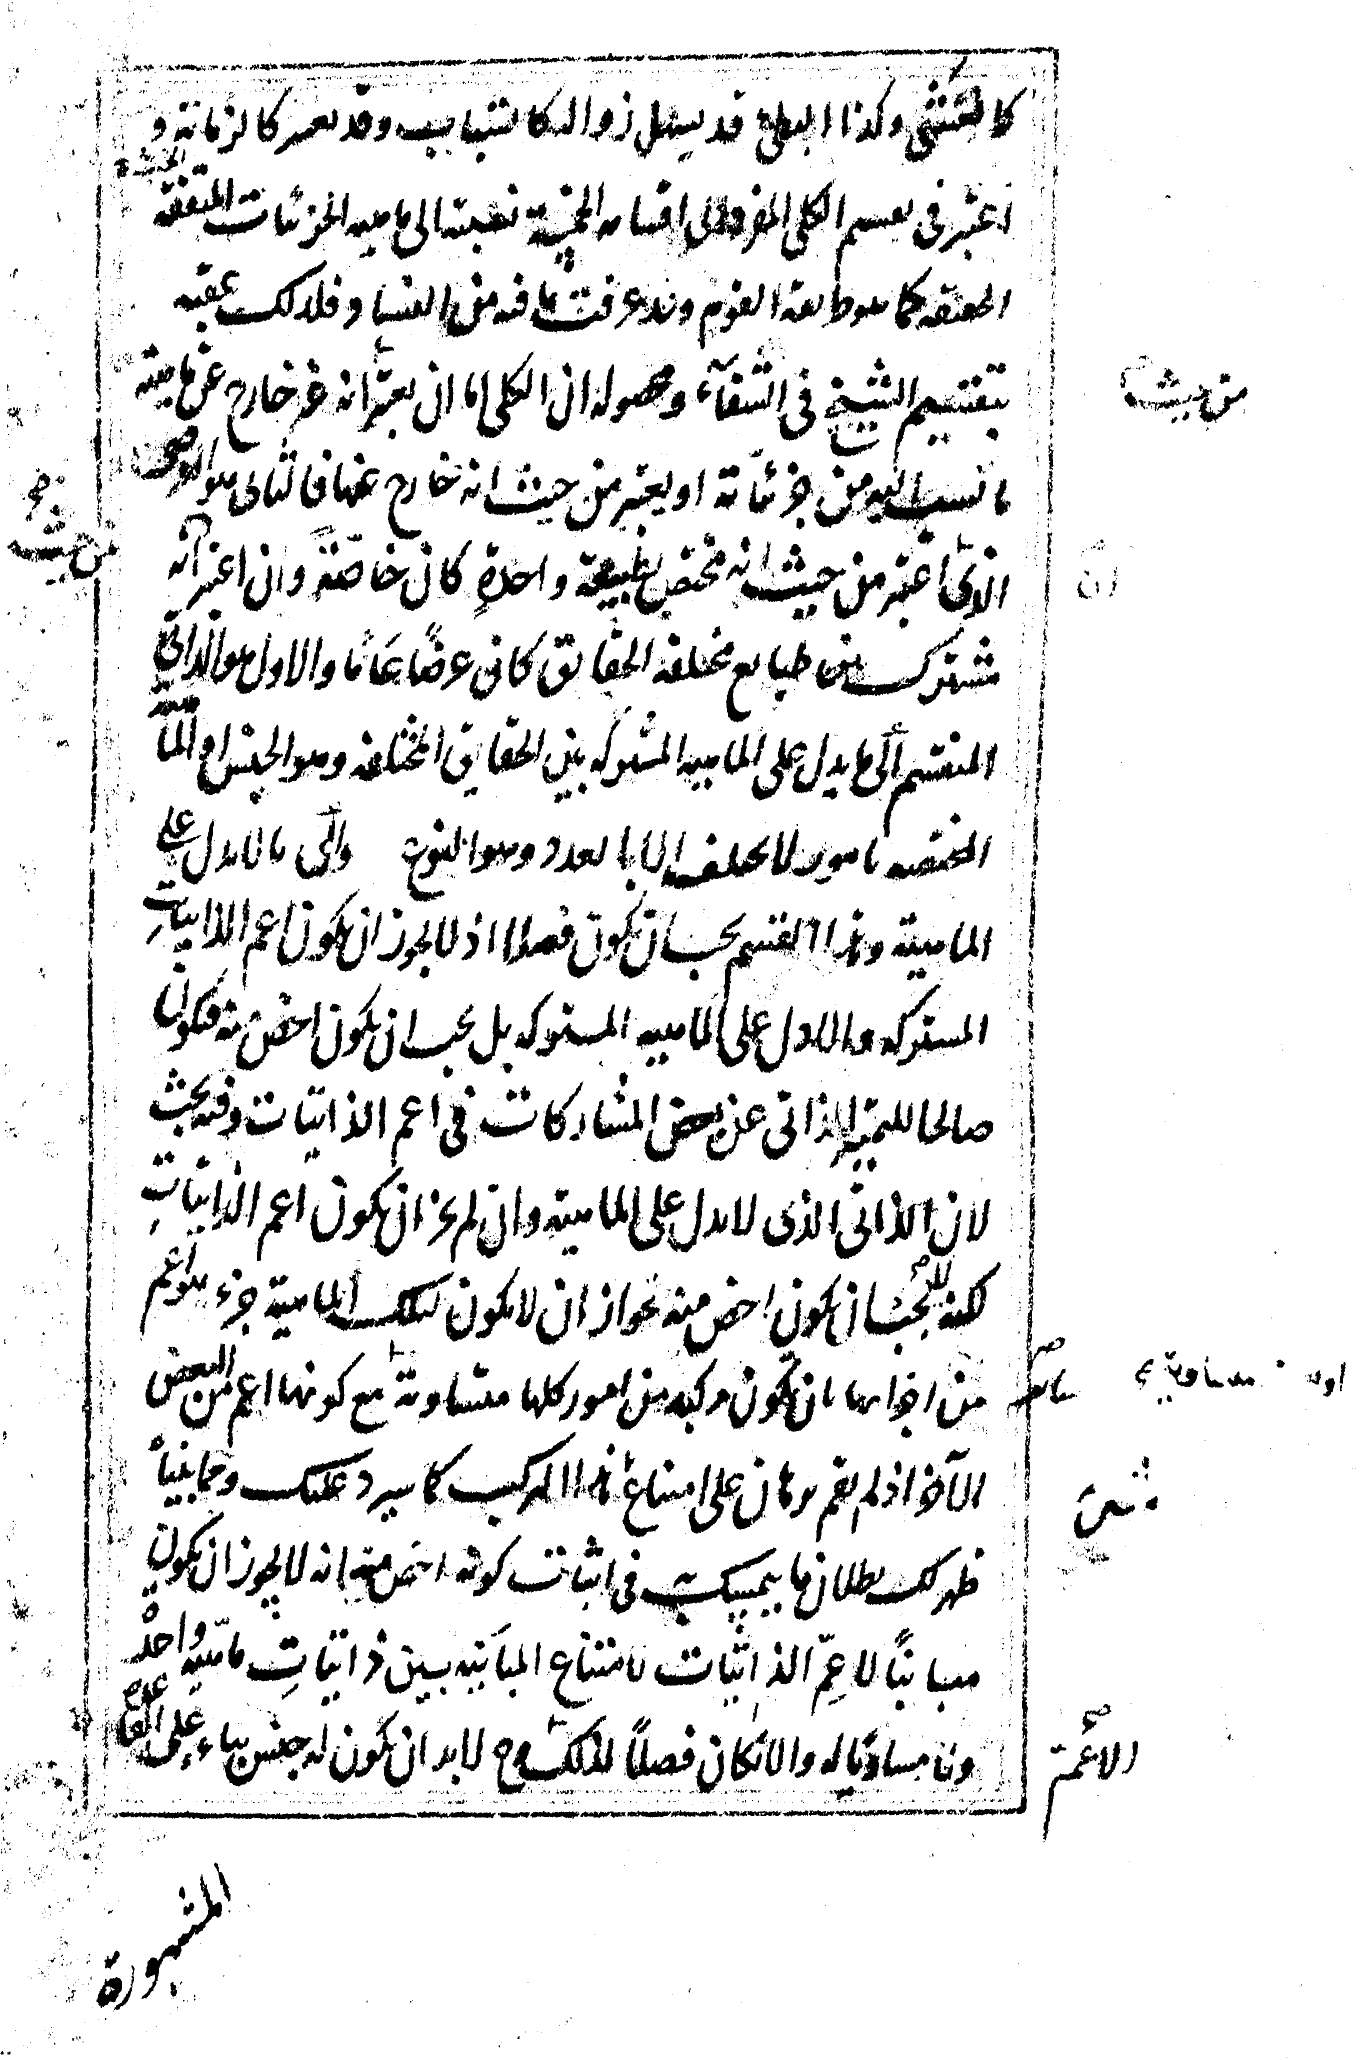 كالتعشق وكذا البطئ قد يسهل زواله كالشباب وقد يعسر كالزمانة و
اعتبر في تقسيم الكلي المفرد الى اقسامه الخمسة نسبته الى ماهيه الجزئيات المتفقة
الحقيقه كما هو طريقة القوم وقد عرفت ما فيه من الفساد فلذلك عقبه
بتقسيم الشيخ في الشفآء ومحصوله ان الكلي اما ان يعتبر انه غير خارج عن ماهية
ما نسب اليه من جزئياته او يعتبر من حيث انه خارج عنها فالثاني هو العرضي
الذي اعتبر من حيث انه مختص بطبيعة واحدةٍ كان خاصّةً وان اعتبر انه
مشترك بين طبايع مختلفه الحقايق كان عرضًا عامًا والاول هو الذاتي
المنقسم الى ما يدل على الماهيه المشتركه بين الحقايق المختلفه وهو الجنس او الماهية
المختصه بامور لا تختلف الا بالعدد وهو النوع والى ما لا يدل على
الماهية وهذا القسم يجب ان يكون فصلا اذ لا يجوز ان يكون اعم الذاتيات
المشتركه والا لدل على الماهيه المشتركه بل يجب ان يكون اخص منه فيكون
صالحا للتميز الذاتي عن بعض المشاركات في اعم الذاتيات وفيه بحث
لان الذاتي الذي لا يدل على الماهية وان لم يجز ان يكون اعم الذاتياتِ
لكنه لا يجب ان يكون اخص منه لجواز ان لا يكون لتلك الماهية جزء هو اعم
من اجزائها بان يكون مركبه من امور كلها متساوية مع كونها اعم من البعض
الآخر اذ لم يقم برهان على امتناع هذا التركيب كما سيرد عليك ومما بيناه
ظهر لك بطلان ما يتمسك به في اثبات كونه اخص منه بانه لا يجوز ان يكون
مباينًا لاعمِّ الذاتيات لامتناع المباينه بين ذاتياتِ ماهيّه واحدة
ولا مساويًا له والا لكان فصلًا لذلك وح لا بد ان يكون له جنس بناء على القاعدة
المشهورة
من حيث
من حيث
صح
ان
صح
الاعم